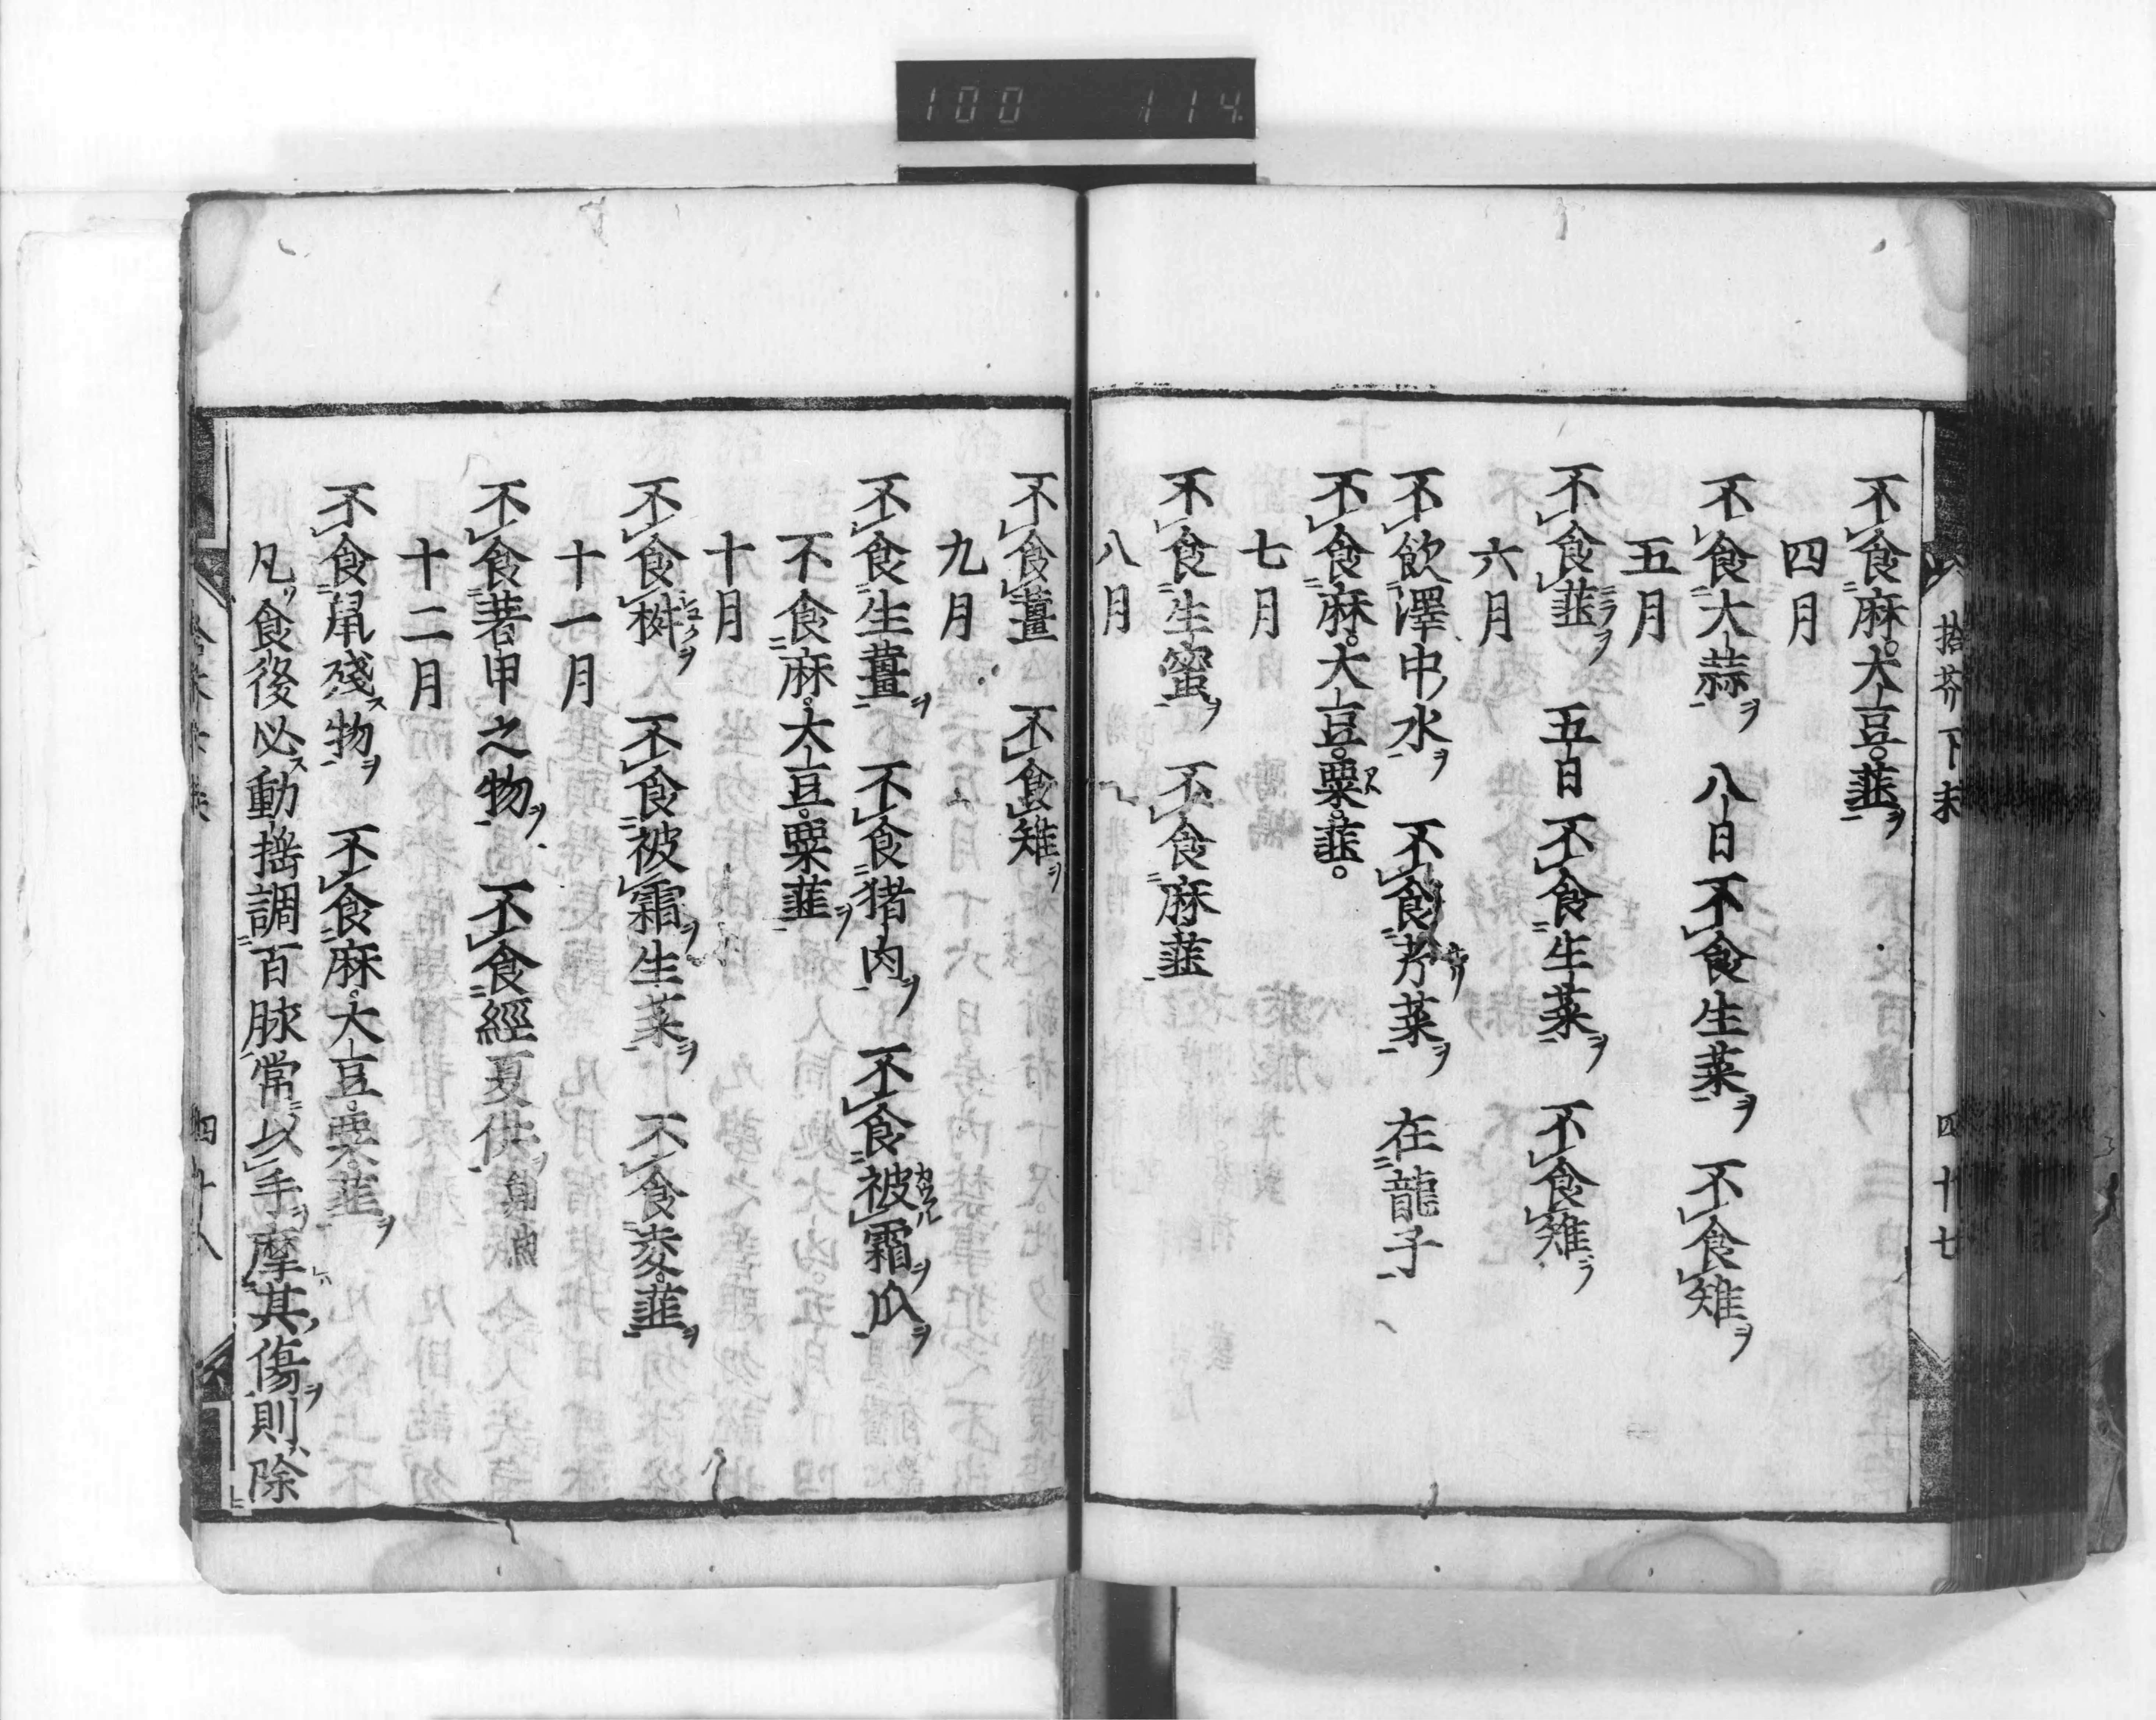 100 114
拾芥下末 四十七
不食麻大豆韮ヲ
四月
不食大蒜ヲ 八日不食生菜ヲ 不食雉ヲ
五月
不食韮ミラヲ 五日不食生菜ヲ 不食雉ヲ
六月
不飲澤中水ヲ 不食芹菜ヲ 在龍子
不食麻大豆粟韮
七月
不食生蜜ヲ 不食麻韮
八月
不食薑 不食雉ヲ
九月
不食生薑ヲ 不食猪肉ヲ 不食被霜ヲ瓜ヲ
不食麻大豆粟韮ヲ
十月
不食椒ヲ 不食被霜ヲ生菜ヲ 不食麥韮ヲ
十一月
不食著甲之物ヲ 不食經夏
十二月
不食鼠殘ス物ヲ 不食麻大豆粟韮ヲ
凡ソ食後必ス動揺調百脉常以手摩其傷ヲ則除
四十八